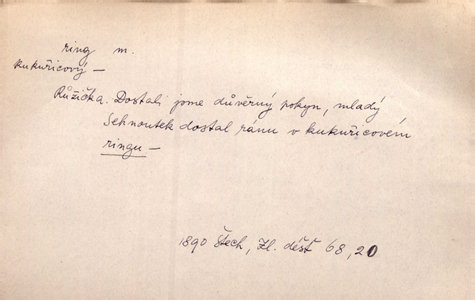 ring m.
kukuřicový —
Růžička. Dostali jsme důvěrný pokyn, mladý
Sehnoutek dostal ránu v kukuřicovém
ringu —
1890 Štech, Zl. déšť 68, 20